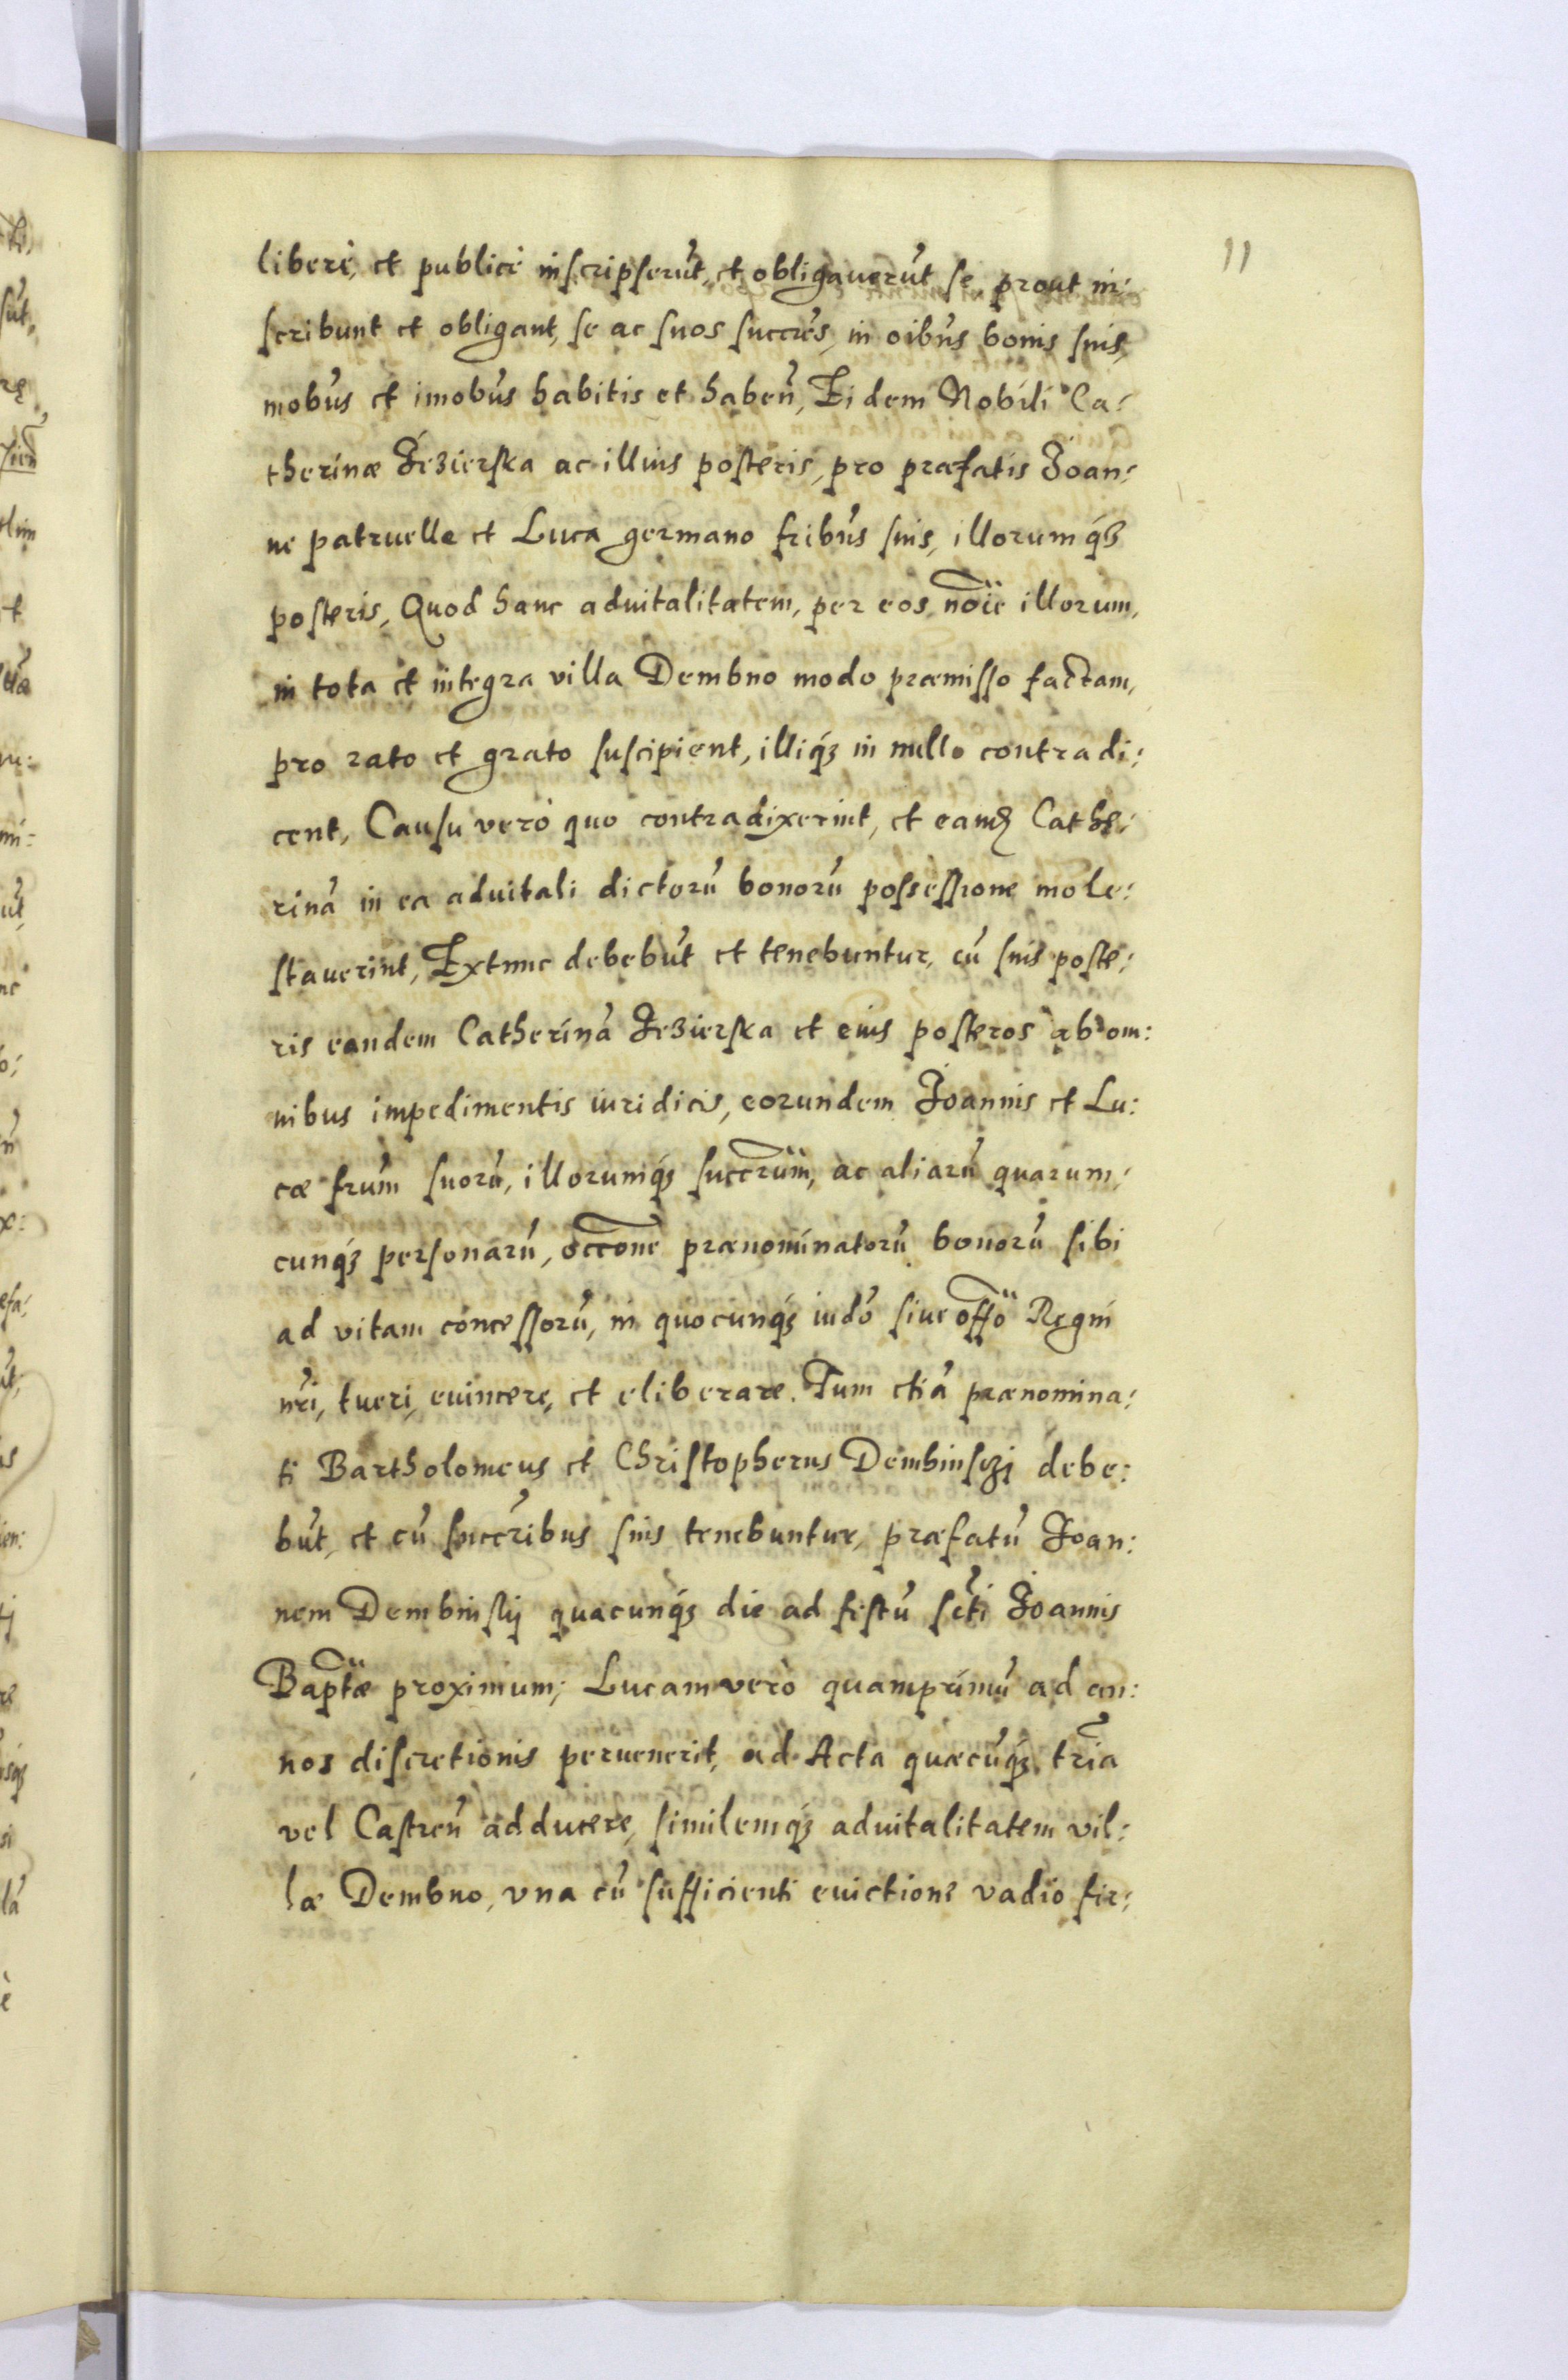 11
liberè, et publicè inscripserūt, et obligauerūt se, prout in:
scribunt et obligant, se ac suos succr̄es, in oībus bonis suis,
mobūs et imobūs habitis et haben̄, Eidem Nobili Ca:
therinæ Jezierska ac illius posteris, pro præfatis Joan:
ne patruelle et Luca germano fribūs suis, illorumq́ꝫ
posteris, Quod hanc aduitalitatem, per eos, noīe illorum,
in tota et integra villa Dembno modo præmisso factam,
pro rato et grato suscipient, illiq́ꝫ in nullo contradi:
cent, Causu verò quo contradixerint, et eamđ Cathe:
rinā in ea aduitali dictorū bonorū possessione mole:
stauerint, Extunc debebūt et tenebuntur, cū suis poste:
ris eandem Catherinā Jezierska et eius posteros ab om:
nibus impedimentis iuridicis, eorundem Joannis et Lu:
cæ frūm suorū, illorumq́ꝫ succrūm, ac aliarū quarum:
cunq́ꝫ personarū, occ̄one prænominatorū bonorū sibi
ad vitam concessorū, in quocunq́ꝫ iudō siue offō Regni
nr̄i, tueri, euincere, et eliberare. Tum etiā prænomina:
ti Bartholomeus et Christopherus Dembinsczj debe:
būt, et cū succr̄ibus suis tenebuntur, præfatū Joan:
nem Dembinskij quacunq́ꝫ die ad festū sc̄ti Joannis
Bapt̄æ proximum; Lucam verò quamprimū ad an:
nos discretionis peruenerit, ad Acta quæcūq́ꝫ tr̄ia
vel Castren̄ adducere, similemq́ꝫ aduitalitatem vil:
læ Dembno, vna cū sufficienti euictione vadio fir: